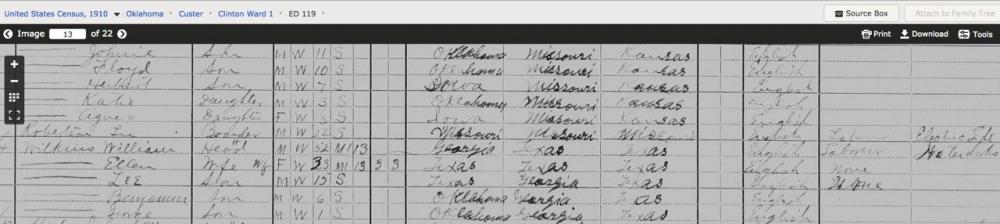 United States Census, 1910 Oklahoma Custer Clinton Ward 1 ED 119
Source Box
Attach to Family Tree
Image 13 of 22
Print Download Tools
Johnnie Son M W 11 S Oklahoma Missouri Kansas English
Floyd Son M W 10 S Oklahoma Missouri Kansas English
Herbert Son M W 7 S Iowa Missouri Kansas English
Katie Daughter M W 3 S Oklahoma Missouri Kansas English
Agnes Daughter F W S Iowa Missouri Kansas English
Boarder M W 22 S Missouri Missouri English Laborer Electric
Wilkins William Head M W 32 M1 13 Georgia Texas Texas English Laborer
Ellen Wife F W 33 M1 13 3 3 Texas Texas Texas English None
LEE Son M W 15 S Texas Georgia Texas English None
Benjamin Son M W 6 S Oklahoma Georgia Texas English
Son M W 1 S Oklahoma Georgia Texas